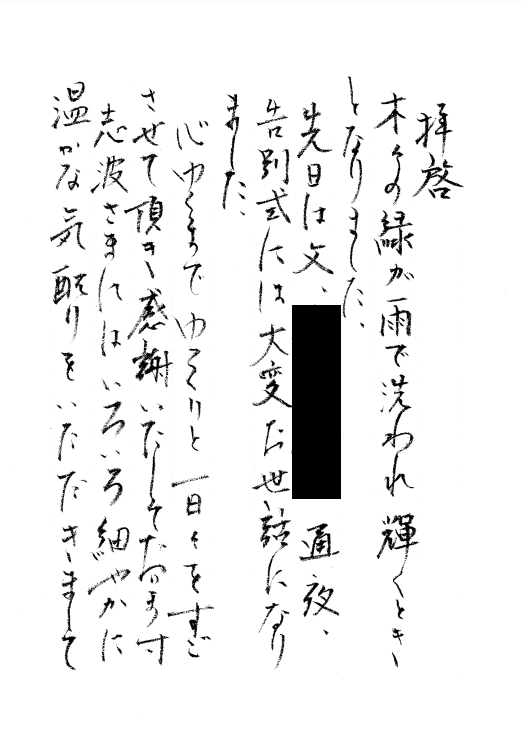 拝啓
木々の緑が雨で洗われ輝くとき
となりました、
先日は父、通夜、
告別式には大変お世話になり
ました、
心ゆくまでゆっくりと一日々をすご
させて頂き感謝いたしております
志波さまにはいろいろ細やかに
温かな気配りをいただきまして